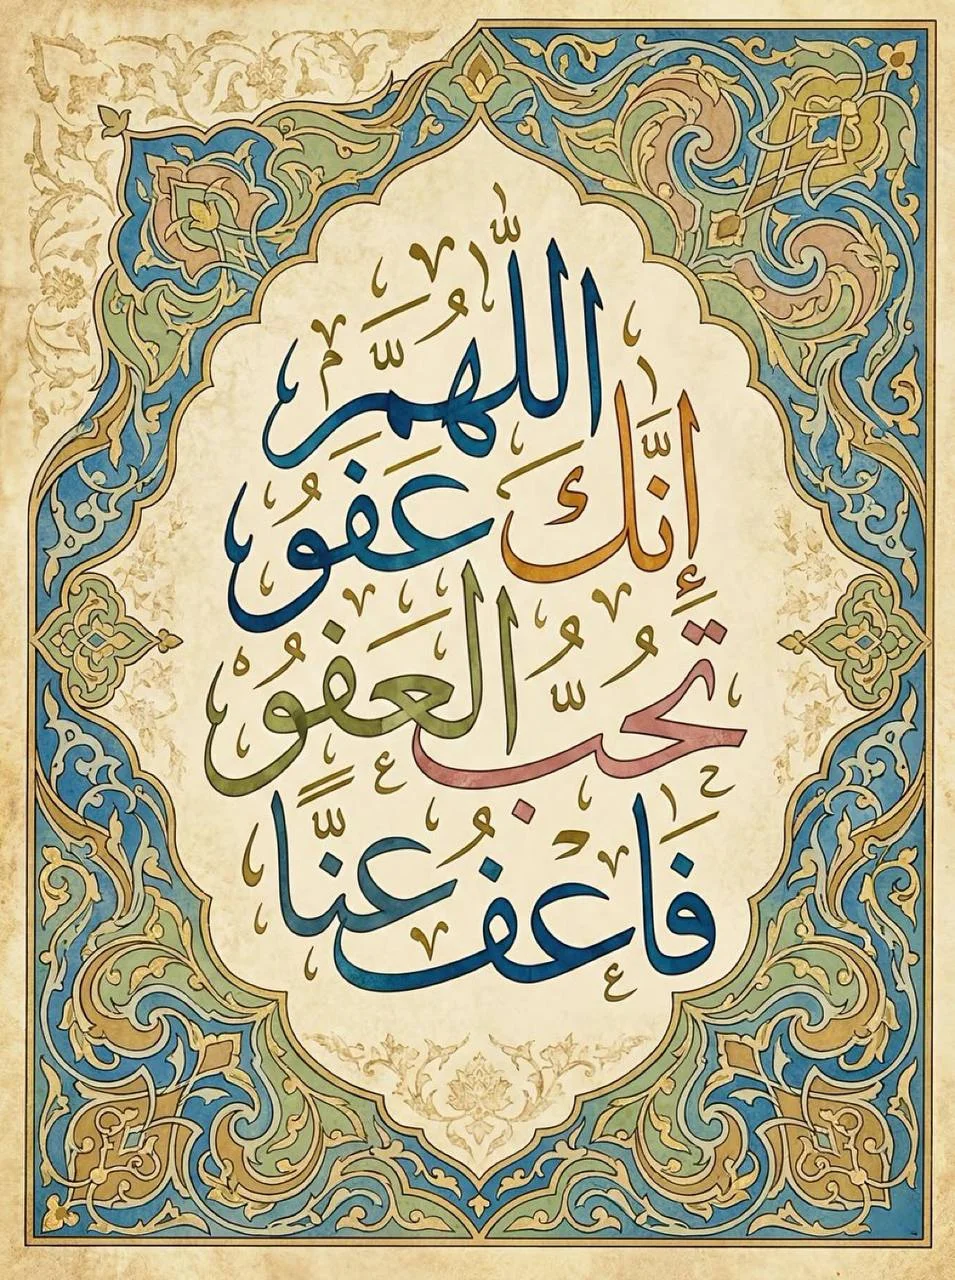 اللّٰهُمَّ
إِنَّكَ عَفُوٌّ
تُحِبُّ الْعَفْوَ
فَاعْفُ عَنَّا